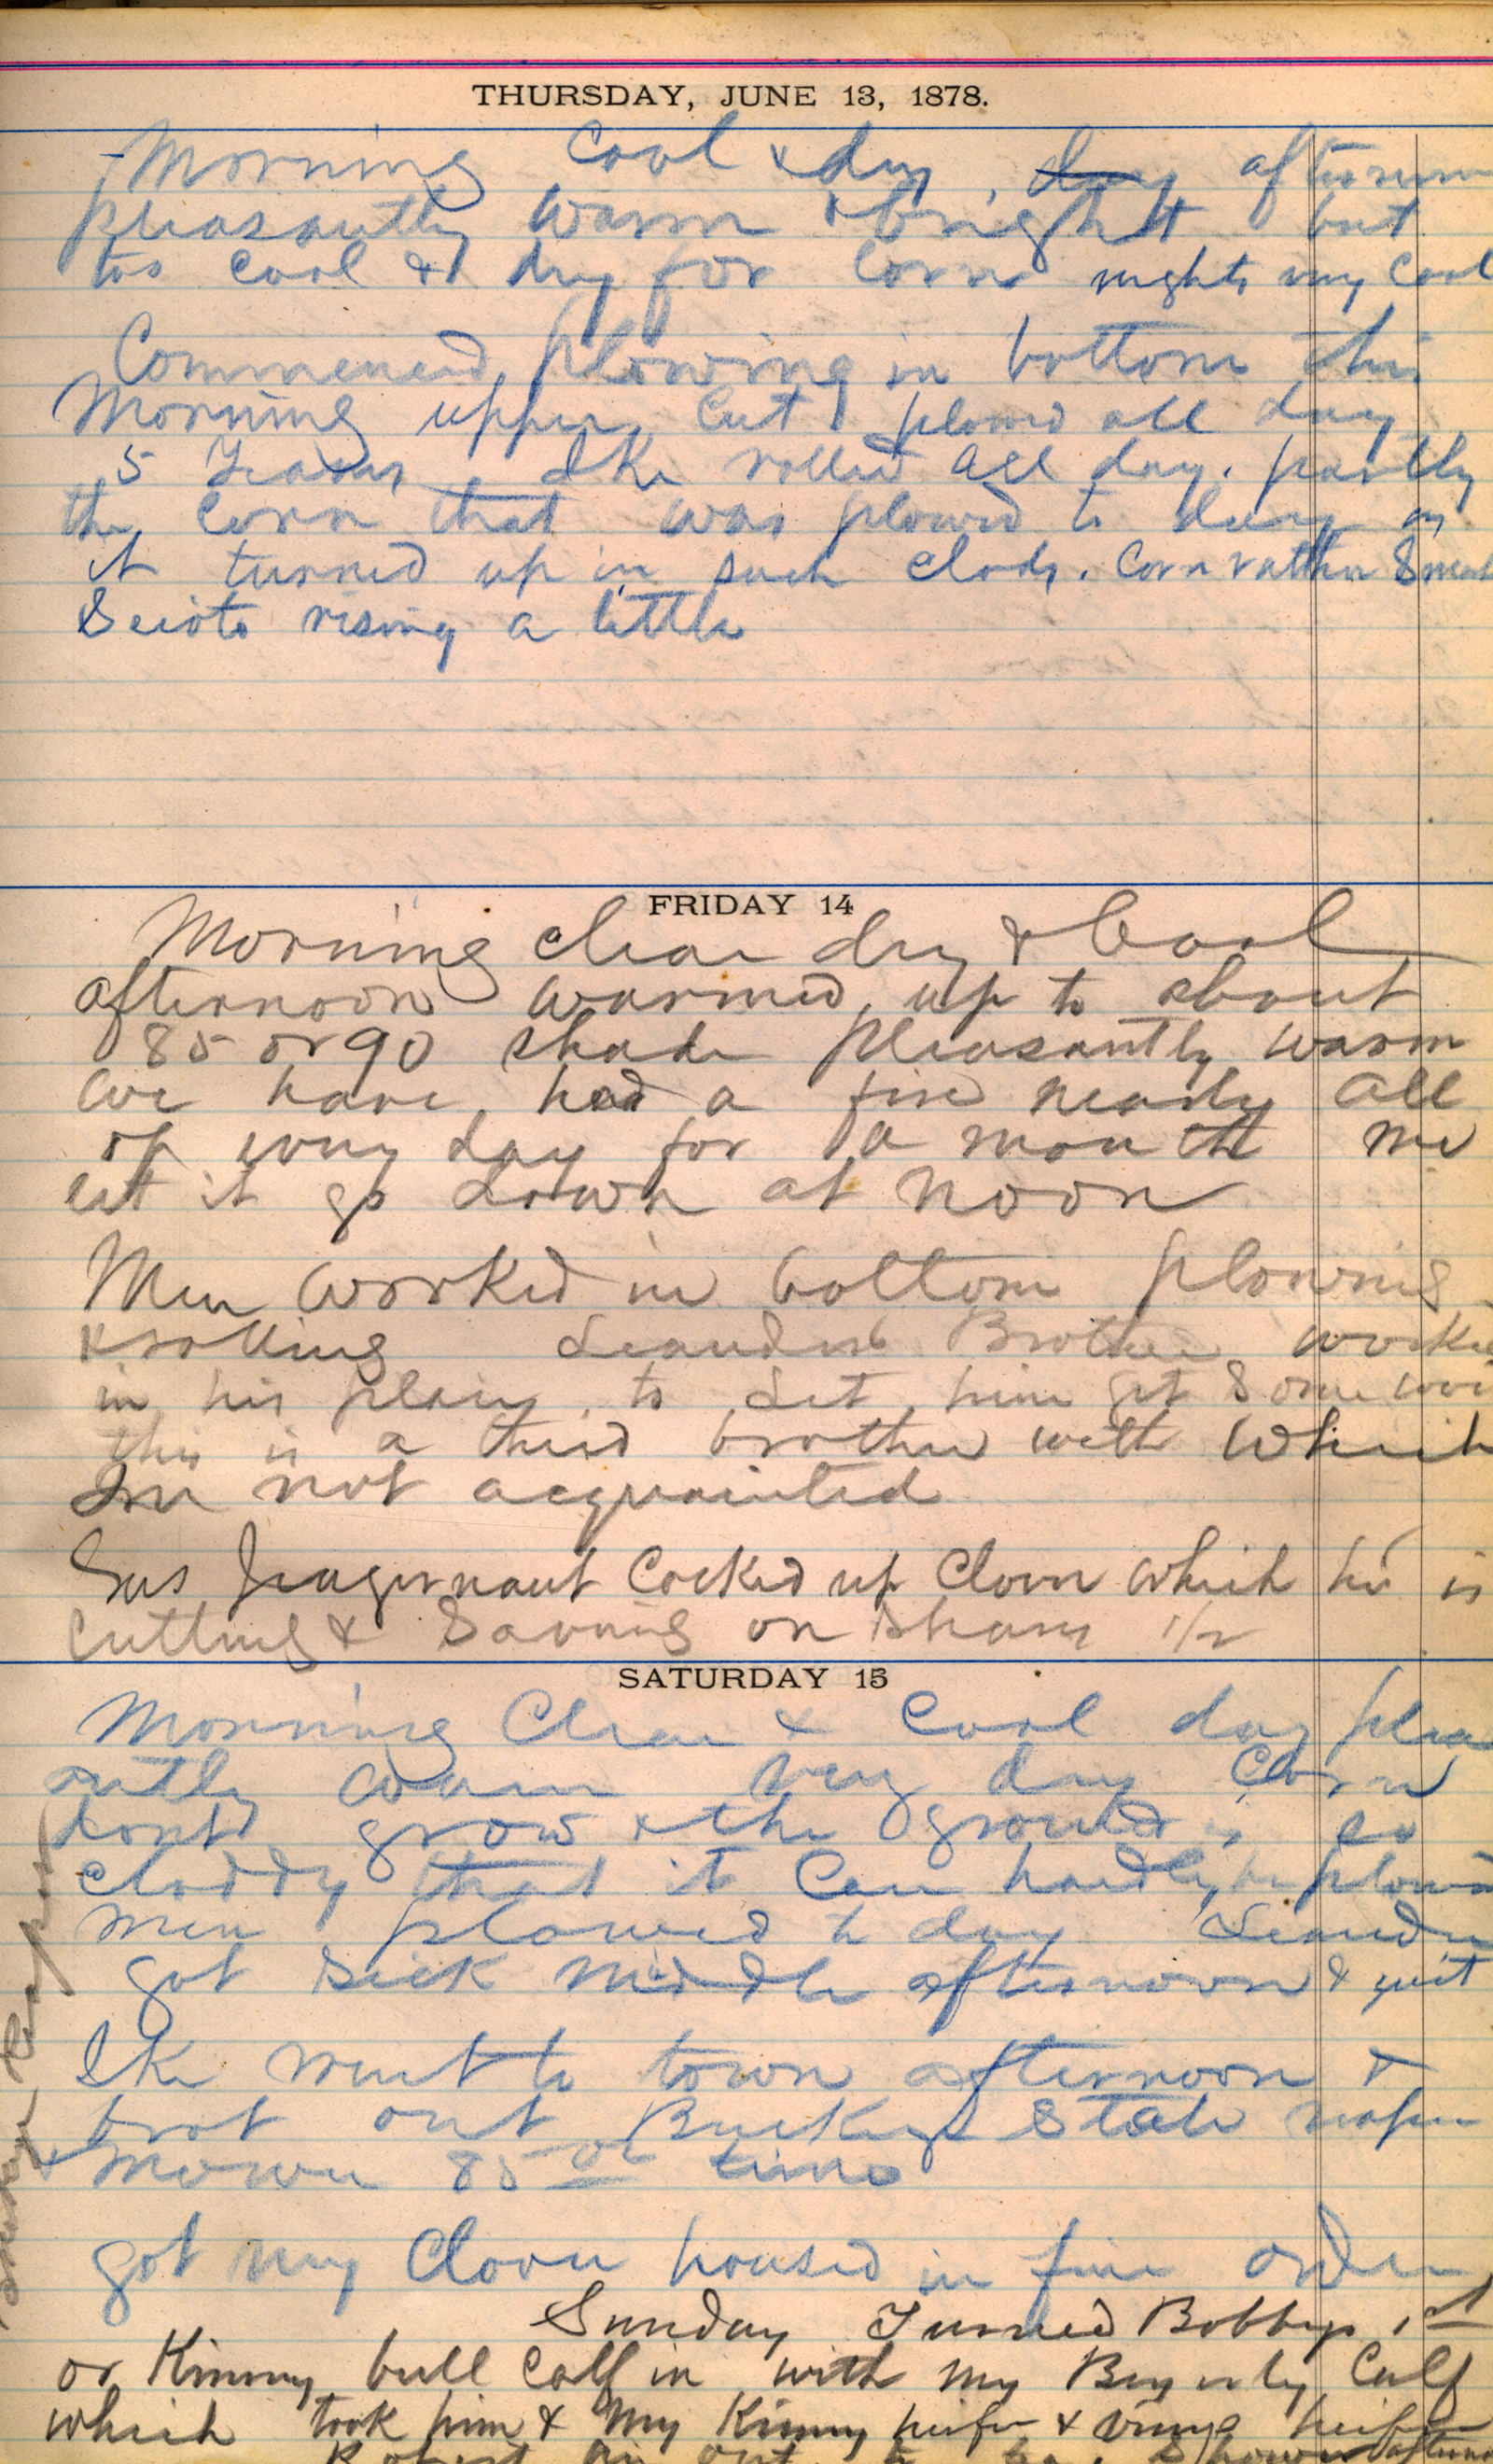 THURSDAY, JUNE 13, 1878.
Morning Cool & dry, day afternoon
pleasantly warm & bright but
too cool & dry for corn nights very cool
Commenced plowing in bottom this
Morning upper Cut plowed all day
5 Teams Ike rolled all day. partly
the corn that was plowed to day as
it turned up in such clods. Corn rather Small
Scioto rising a little
FRIDAY 14
Morning clear dry & Cool
afternoon warmed up to about
85 or 90 shade pleasantly warm
we have had a fire nearly all
of every day for a month we
let it go down at noon
Men worked in bottom plowing
& rolling Leanders Brother worked
in his place to let him get some
this is a third brother with which
Im not acquainted
Gus cocked up Clover which he is
cutting & Saving on shares 1/2
SATURDAY 15
Morning Clear & Cool day pleas
antly warm very dry Corn
dont grow & the ground is so
cloddy that it can hardly be plowed
men plowed to day Leander
got sick middle afternoon & quit
Ike went to town afternoon &
brot out Buckeye State reaper
& mower 85 00 time
got my Clover housed in fine order
Sunday Turned Bobby 1st
or Kinney bull calf in with my Calf
which took him & my Kinney heifer & heifer